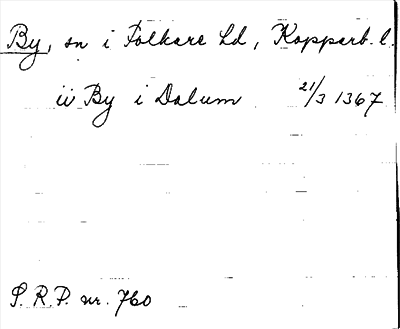 By, sn i Folkare hd, Kopparb. l.
ii By i Dalum 21/3 1367
S.R.P. nr. 760